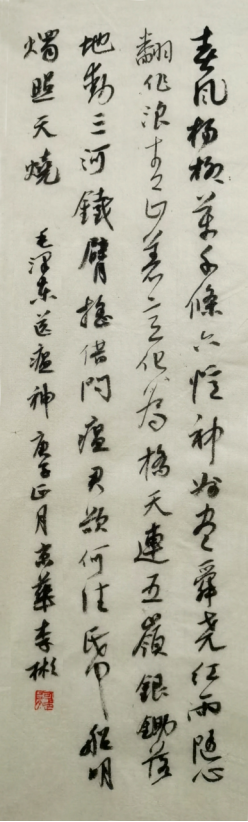 春风杨柳萬千條六億神州尽舜尧红雨随心
翻作浪青山着意化為橋天連五嶺銀鋤落
地動三河鐵臂摇借问瘟君欲何往帋船明
燭照天燒 毛澤東送瘟神 庚子正月京華李彬